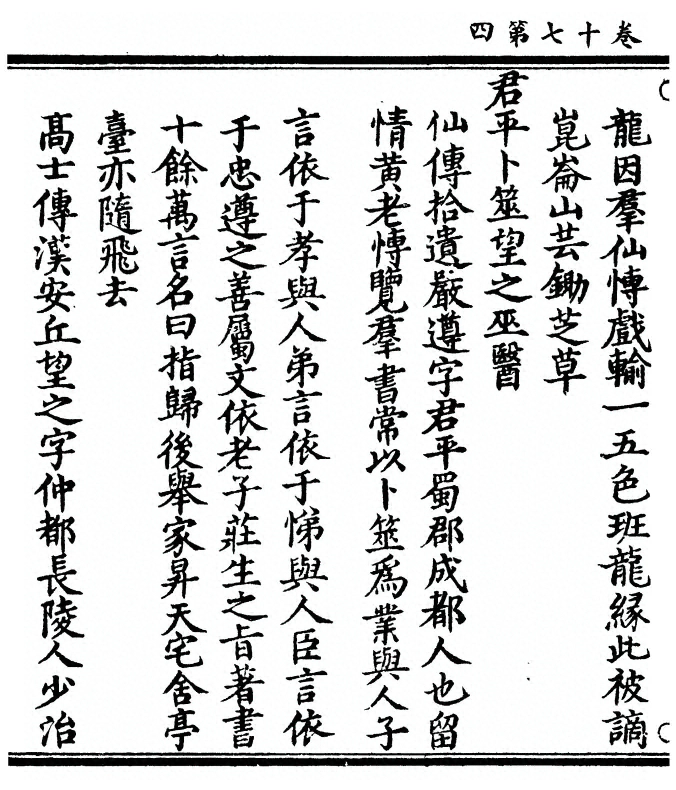 卷十七第四
龍因羣仙愽戲輸一五色班龍緣此被謫
崑崙山芸鋤芝草
君平卜筮望之巫醫
仙傳拾遺嚴遵字君平蜀郡成都人也留
情黄老愽覽羣書常以卜筮爲業與人子
言依于孝與人弟言依于悌與人臣言依
于忠遵之善屬文依老子莊生之旨著書
十餘萬言名曰指歸後舉家昇天宅舍亭
臺亦隨飛去
髙士傳漢安丘望之字仲都長陵人少治